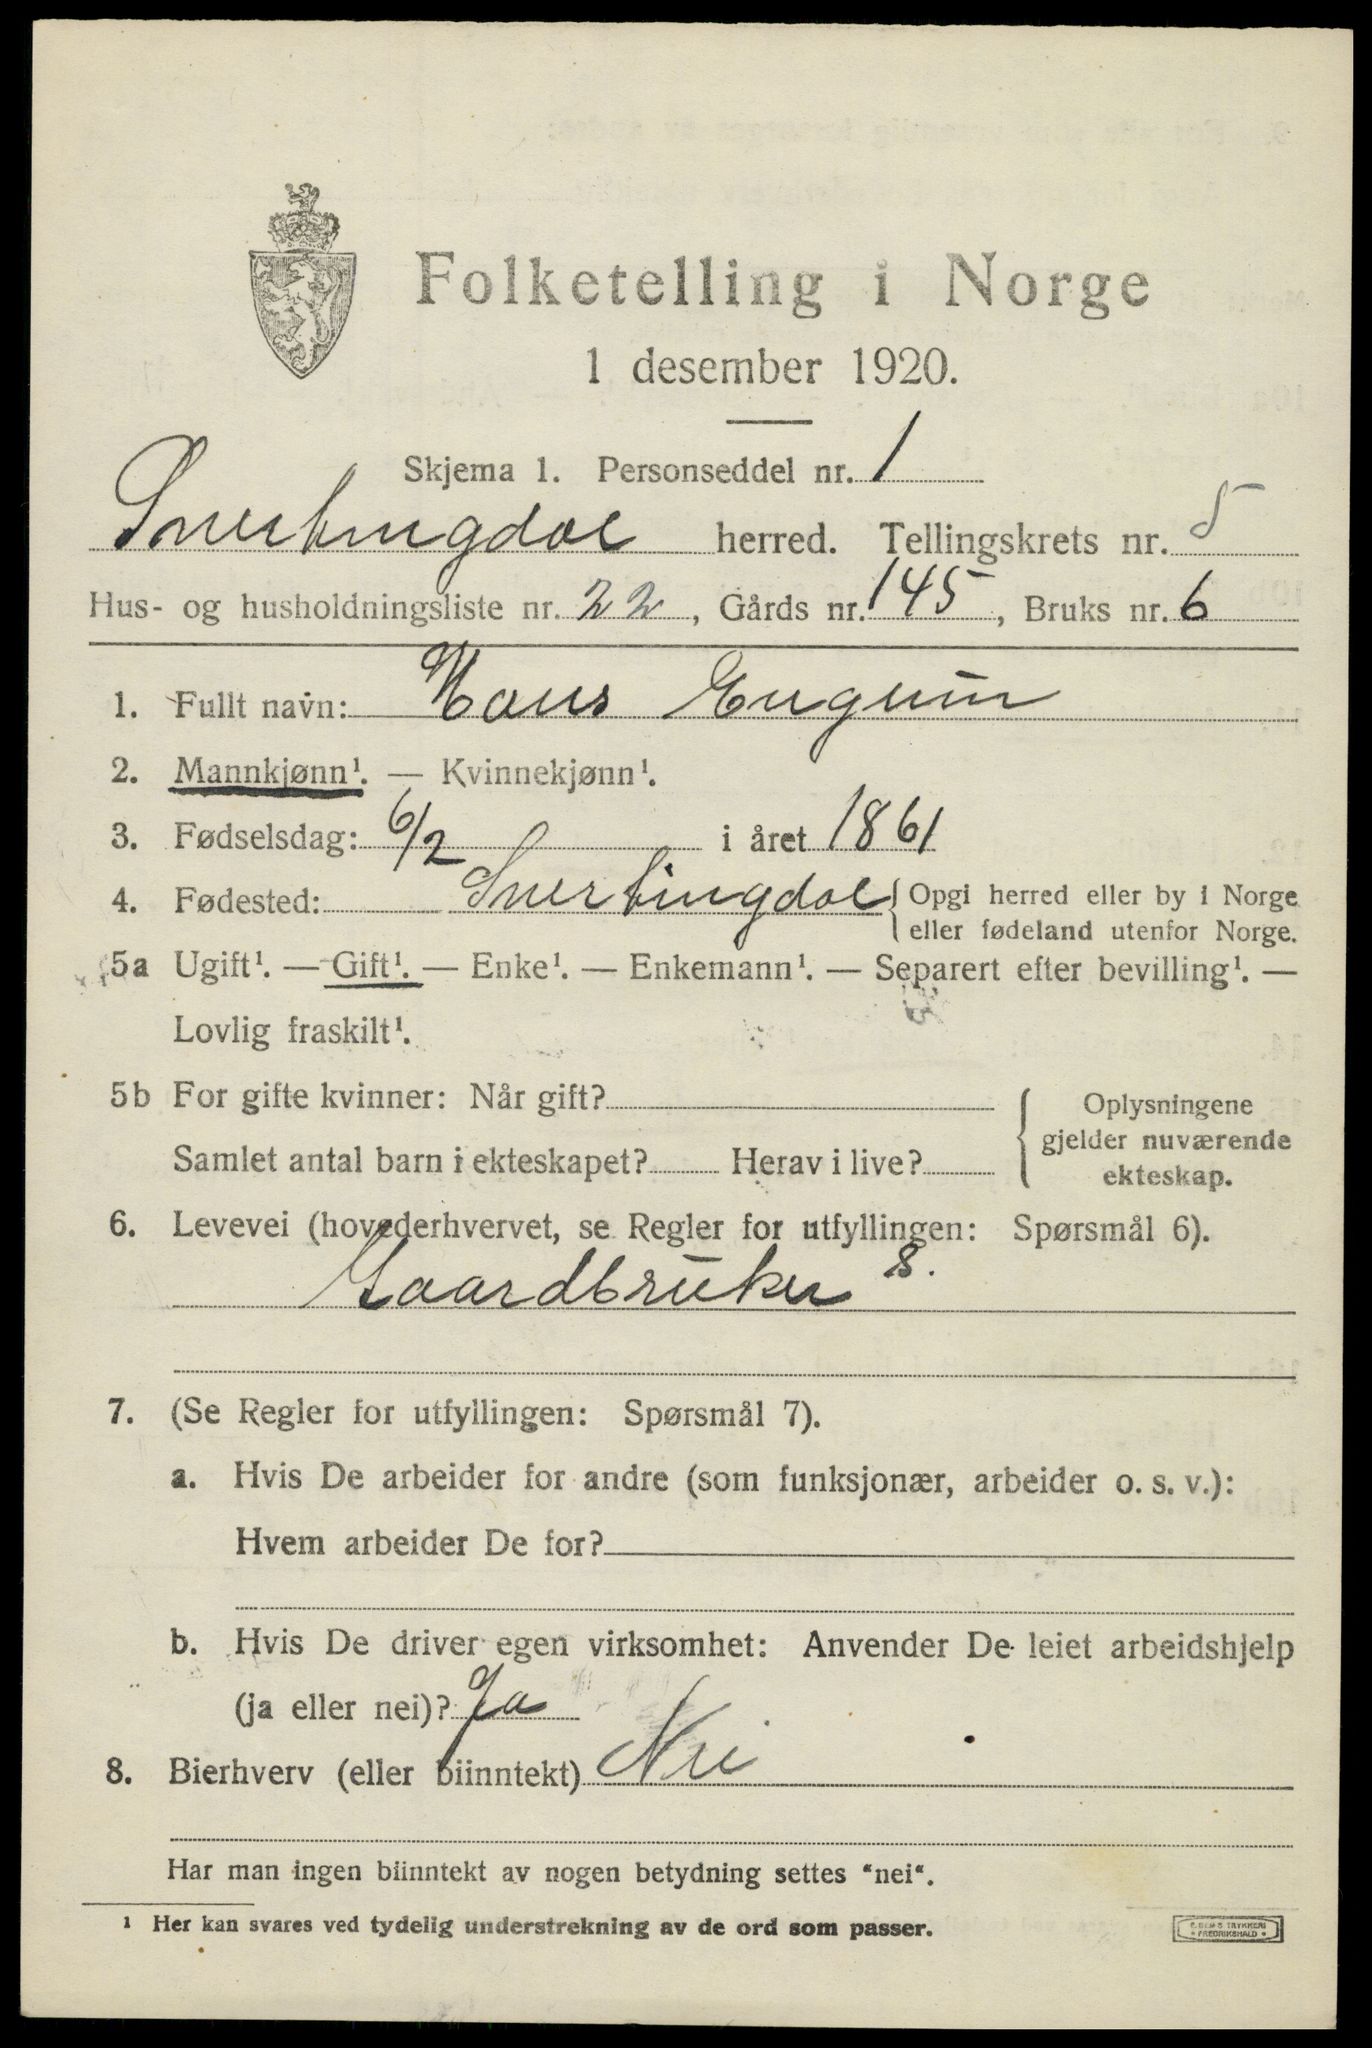 Folketelling i Norge
1 desember 1920.
Skjema 1. Personseddel nr. 1
Snertingdal herred. Tellingskrets nr. 5
Hus- og husholdningsliste nr. 22, Gårds nr. 145, Bruks nr. 6
1. Fullt navn: Hans
2. Mannkjønn¹. — Kvinnekjønn¹.
3. Fødselsdag: 6/2 i året 1861
4. Fødested: Snertingdal { Opgi herred eller by i Norge
eller fødeland utenfor Norge.
5a Ugift¹. — Gift¹. — Enke¹. — Enkemann¹. — Separert efter bevilling¹. —
Lovlig fraskilt¹.
5b For gifte kvinner: Når gift?
Samlet antal barn i ekteskapet? Herav i live?
{ Oplysningene
gjelder nuværende
ekteskap.
6. Levevei (hovederhvervet, se Regler for utfyllingen: Spørsmål 6).
Gaardbruker s.
7. (Se Regler for utfyllingen: Spørsmål 7).
a. Hvis De arbeider for andre (som funksjonær, arbeider o. s. v.):
Hvem arbeider De for?
b. Hvis De driver egen virksomhet: Anvender De leiet arbeidshjelp
(ja eller nei)? Ja
8. Bierhverv (eller biinntekt) Nei
Har man ingen biinntekt av nogen betydning settes "nei".
¹ Her kan svares ved tydelig understrekning av de ord som passer.
TRYKKERI
FREDRIKSHALD